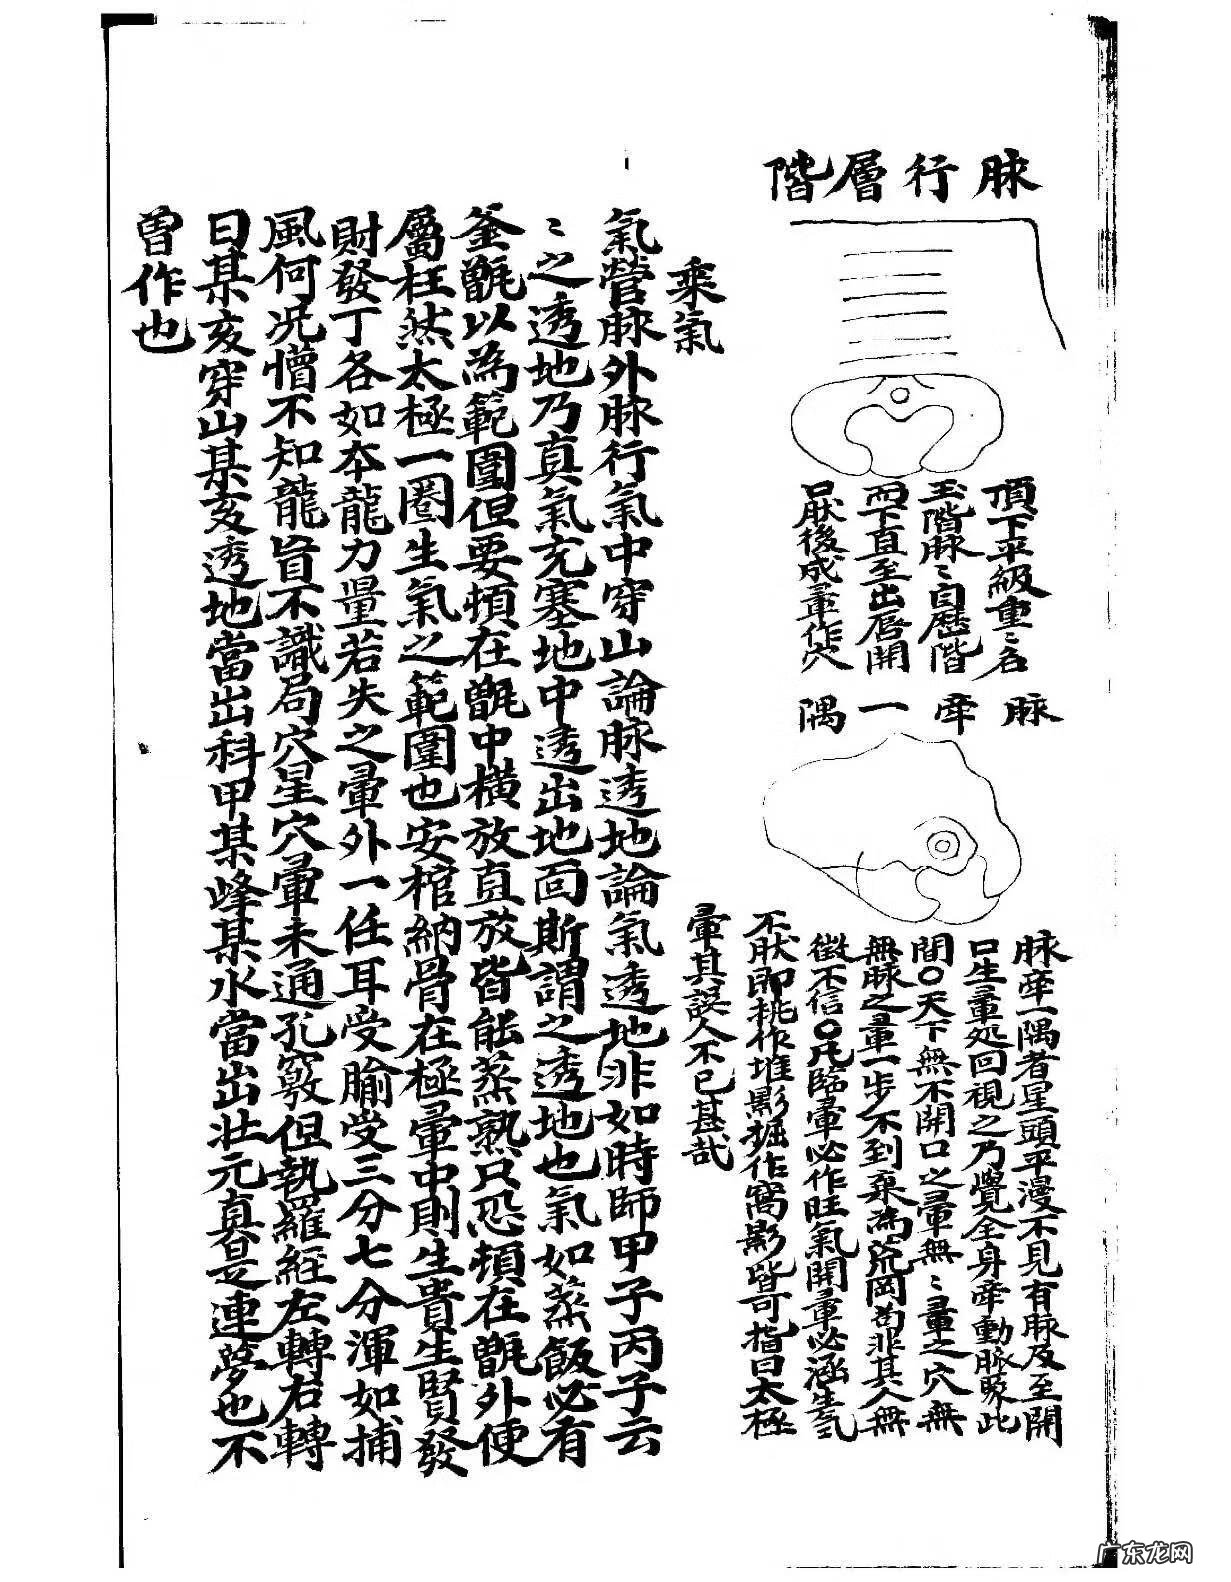 脉行層階
頂下平級重〻名
玉階脉〻自歷階
而下直至出唇開
口肰後成暈作穴
脉牽一隅
脉牽一隅者星頭平漫不見有脉及至開
口生暈処回視之乃覺全身牽動脉隊此
間〇天下無不開口之暈無〻暈之穴無
無脉之暈一步不到棄為荒岡苟非其人無
徵不信〇凡臨暈必作旺氣開暈必涵生氣
不肰即挑作堆影掘作窩影皆可指曰太極
暈其誤人不已甚哉
乘氣
氣營脉外脉行氣中穿山論脉透地論氣透地非如時師甲子丙子云
〻之透地乃真氣充塞地中透出地面斯謂之透地也氣如蒸飯必有
釜甑以為範圍但要頓在甑中橫放直放皆能蒸熟只恐頓在甑外便
屬枉然太極一圈生氣之範圍也安棺納骨在極暈中則生貴生賢發
財發丁各如本龍力量若失之暈外一任耳受腧受三分七分渾如捕
風何况懵不知龍盲不識局穴星穴暈未通孔竅但執羅經左轉右轉
曰某亥穿山某亥透地當出科甲某峰某水當出壯元真是連夢也不
曾作也
广东龙网